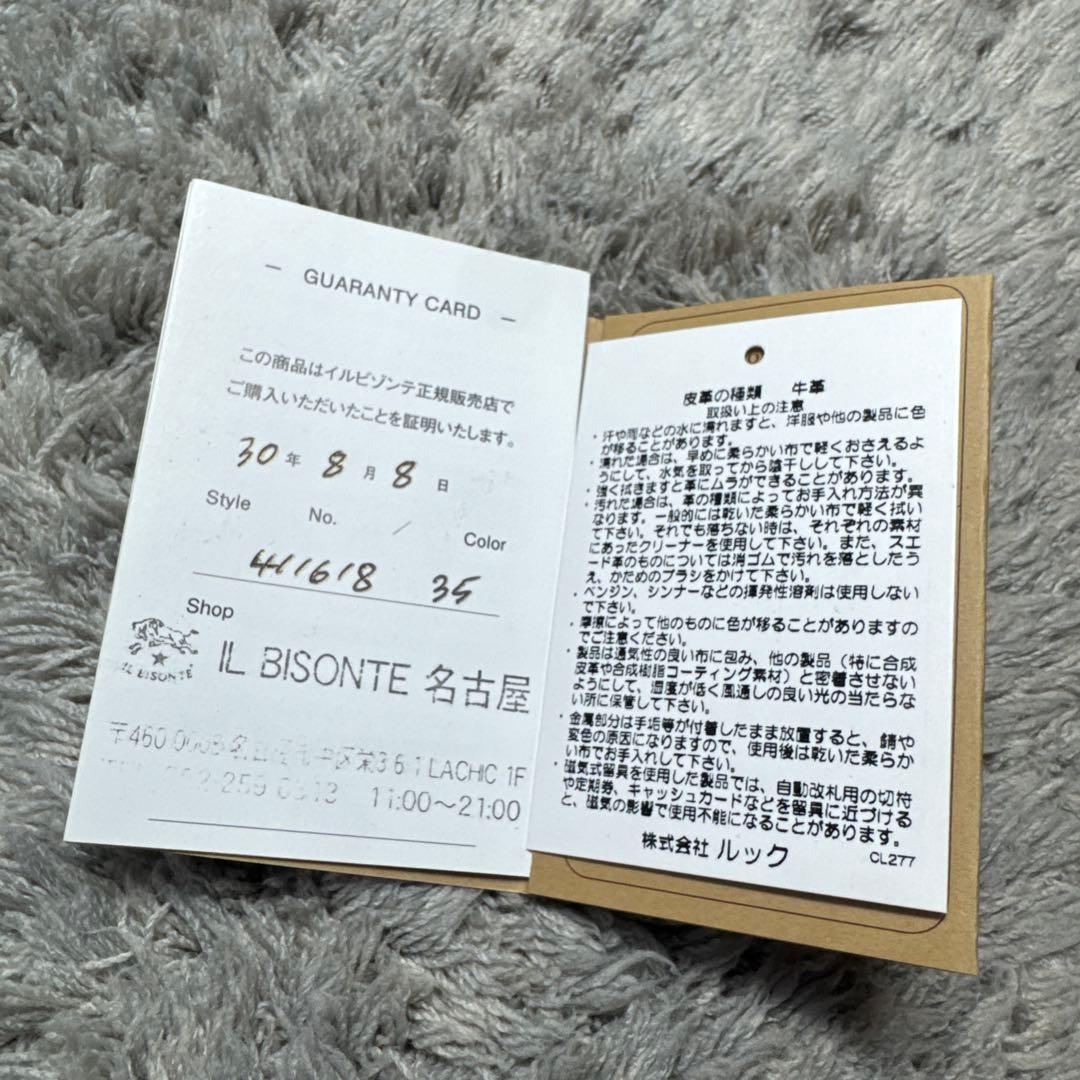 — GUARANTY CARD —
この商品はイルビゾンテ正規販売店で
ご購入いただいたことを証明いたします。
30年 8月 8日
Style No. / Color
411618 35
Shop
IL BISONTE
IL BISONTE 名古屋
〒460 0008 名古屋市中区栄3 6 1 LACHIC 1F
259 11:00〜21:00
皮革の種類 牛革
取扱い上の注意
・汗や雨などの水に濡れますと、洋服や他の製品に色
が移ることがあります。
・濡れた場合は、早めに柔らかい布で軽くおさえるよ
うにして、水気を取ってから陰干しして下さい。
・強く拭きますと革にムラができることがあります。
・汚れた場合は、革の種類によってお手入れ方法が異
なります。一般的には乾いた柔らかい布で軽く拭い
て下さい。それでも落ちない時は、それぞれの素材
にあったクリーナーを使用して下さい。また、スエ
ード革のものについては消ゴムで汚れを落としたう
え、かためのブラシをかけて下さい。
・ベンジン、シンナーなどの揮発性溶剤は使用しない
で下さい。
・摩擦によって他のものに色が移ることがありますの
でご注意ください。
・製品は通気性の良い布に包み、他の製品（特に合成
皮革や合成樹脂コーティング素材）と密着させない
ようにして、湿度が低く風通しの良い光の当たらな
い所に保管して下さい。
・金属部分は手垢等が付着したまま放置すると、錆や
変色の原因になりますので、使用後は乾いた柔らか
い布でお手入れして下さい。
・磁気式留具を使用した製品では、自動改札用の切符
や定期券、キャッシュカードなどを留具に近づける
と、磁気の影響で使用不能になることがあります。
株式会社 ルック CL277